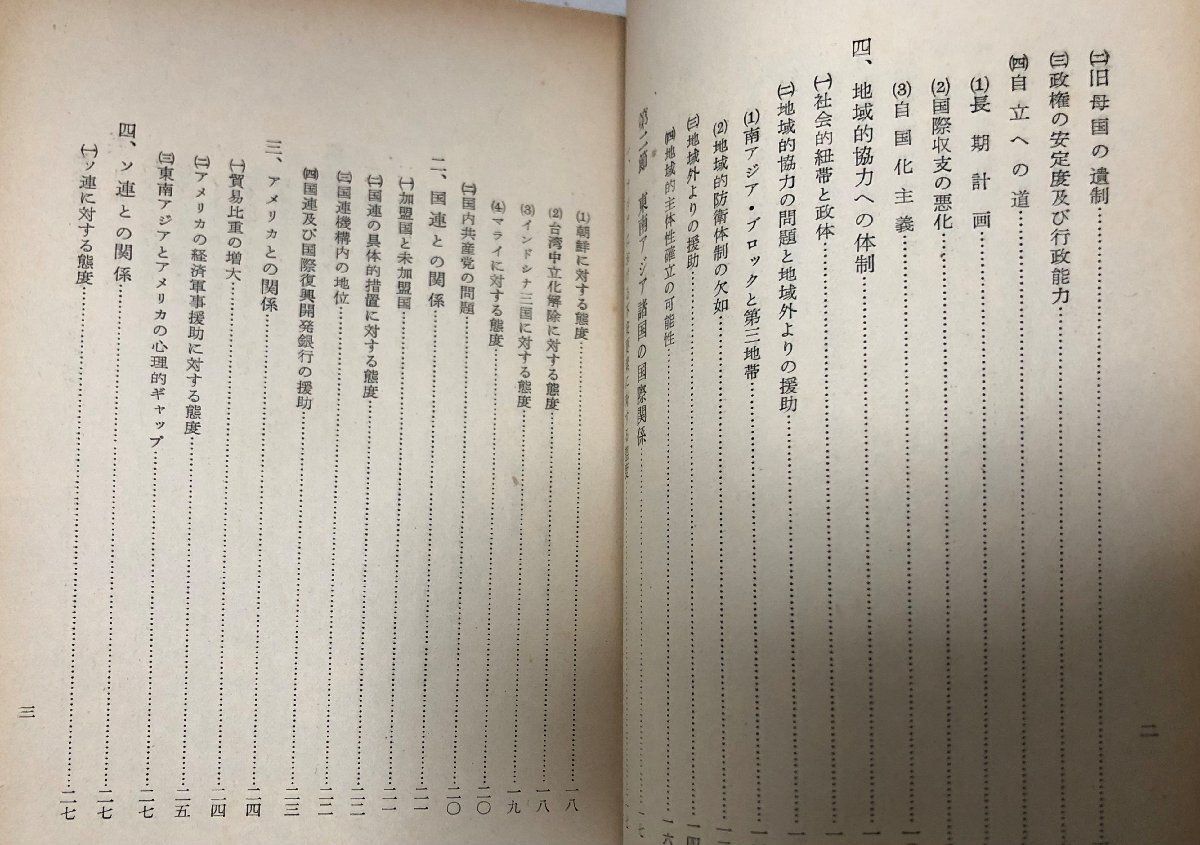 ㈡旧母国の遺制
㈢政権の安定度及び行政能力
㈣自立への道
⑴長期計画
⑵国際収支の悪化
⑶自国化主義
四、地域的協力への体制
㈠社会的紐帯と政体
㈡地域的協力の問題と地域外よりの援助
⑴南アジア・ブロックと第三地帯
⑵地域的防衛体制の欠如
㈢地域外よりの援助
㈣地域的主体性確立の可能性
第二節 東南アジア諸国の国際関係
二
⑴朝鮮に対する態度……一八
⑵台湾中立化解除に対する態度……一八
⑶インドシナ三国に対する態度……一九
⑷マライに対する態度……二〇
㈡国内共産党の問題……二〇
二、国連との関係……二一
㈠加盟国と未加盟国……二一
㈡国連の具体的措置に対する態度……二二
㈢国連機構内の地位……二二
㈣国連及び国際復興開発銀行の援助……二三
三、アメリカとの関係……二四
㈠貿易比重の増大……二四
㈡アメリカの経済軍事援助に対する態度……二五
㈢東南アジアとアメリカの心理的ギャップ……二七
四、ソ連との関係……二七
㈠ソ連に対する態度……二七
三